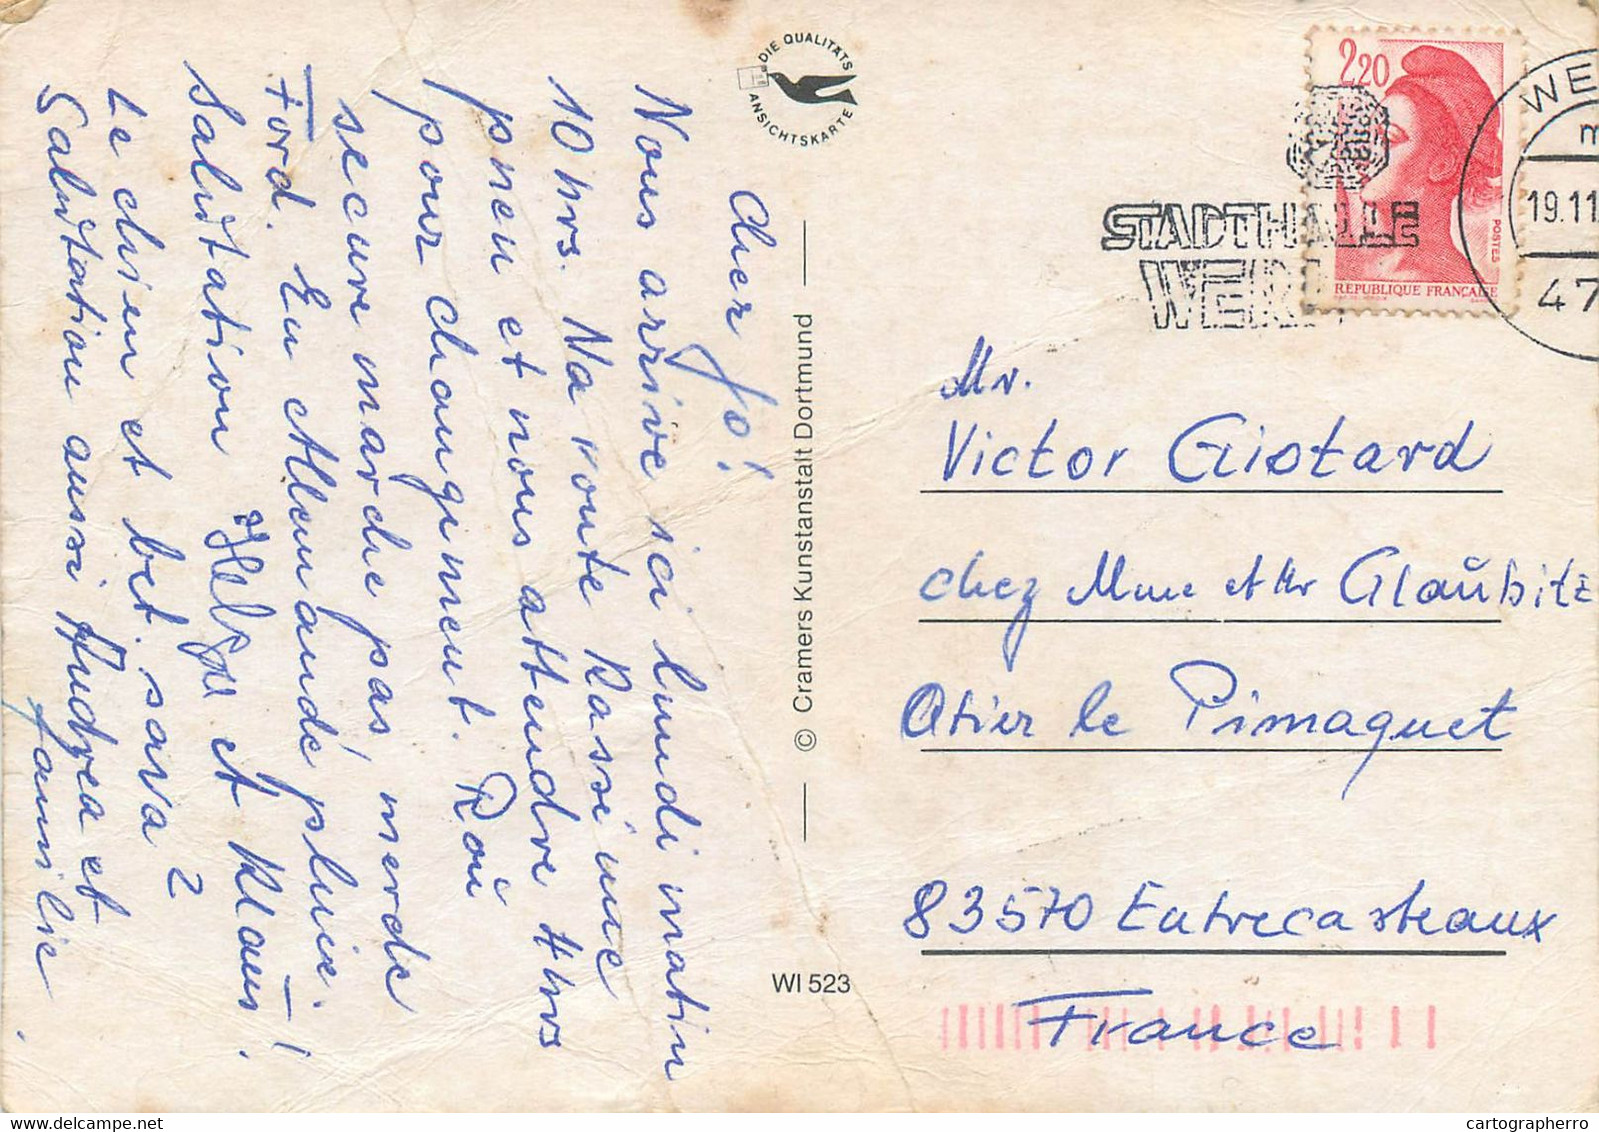 Cher Jo!
Nous arrive ici lundi matin
10 hrs. Na route Kassi une
pneu et nous attendre 4 hrs
pour changinent. Roie
secure marche pas, merde
Ford. En Allemande pluie!
Salutation Helga et Klaus!
Le chien et bet. sava ?
Salutation aussi Andrea et
familie.
DIE QUALITÄTS
ANSICHTSKARTE
© Cramers Kunstanstalt Dortmund
WI 523
2,20
REPUBLIQUE FRANÇAISE
POSTES
STADTHALLE
WERL
WE
19.11
47
Mr.
Victor Giotard
chez Mme et Mr Glaŭbitz
Atier le Pimaquet
83570 Entrecasteaux
France
cartographerro